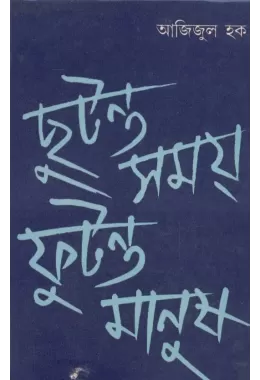 আজিজুল হক
ছুটন্ত
সময়
ফুটন্ত
মানুষ